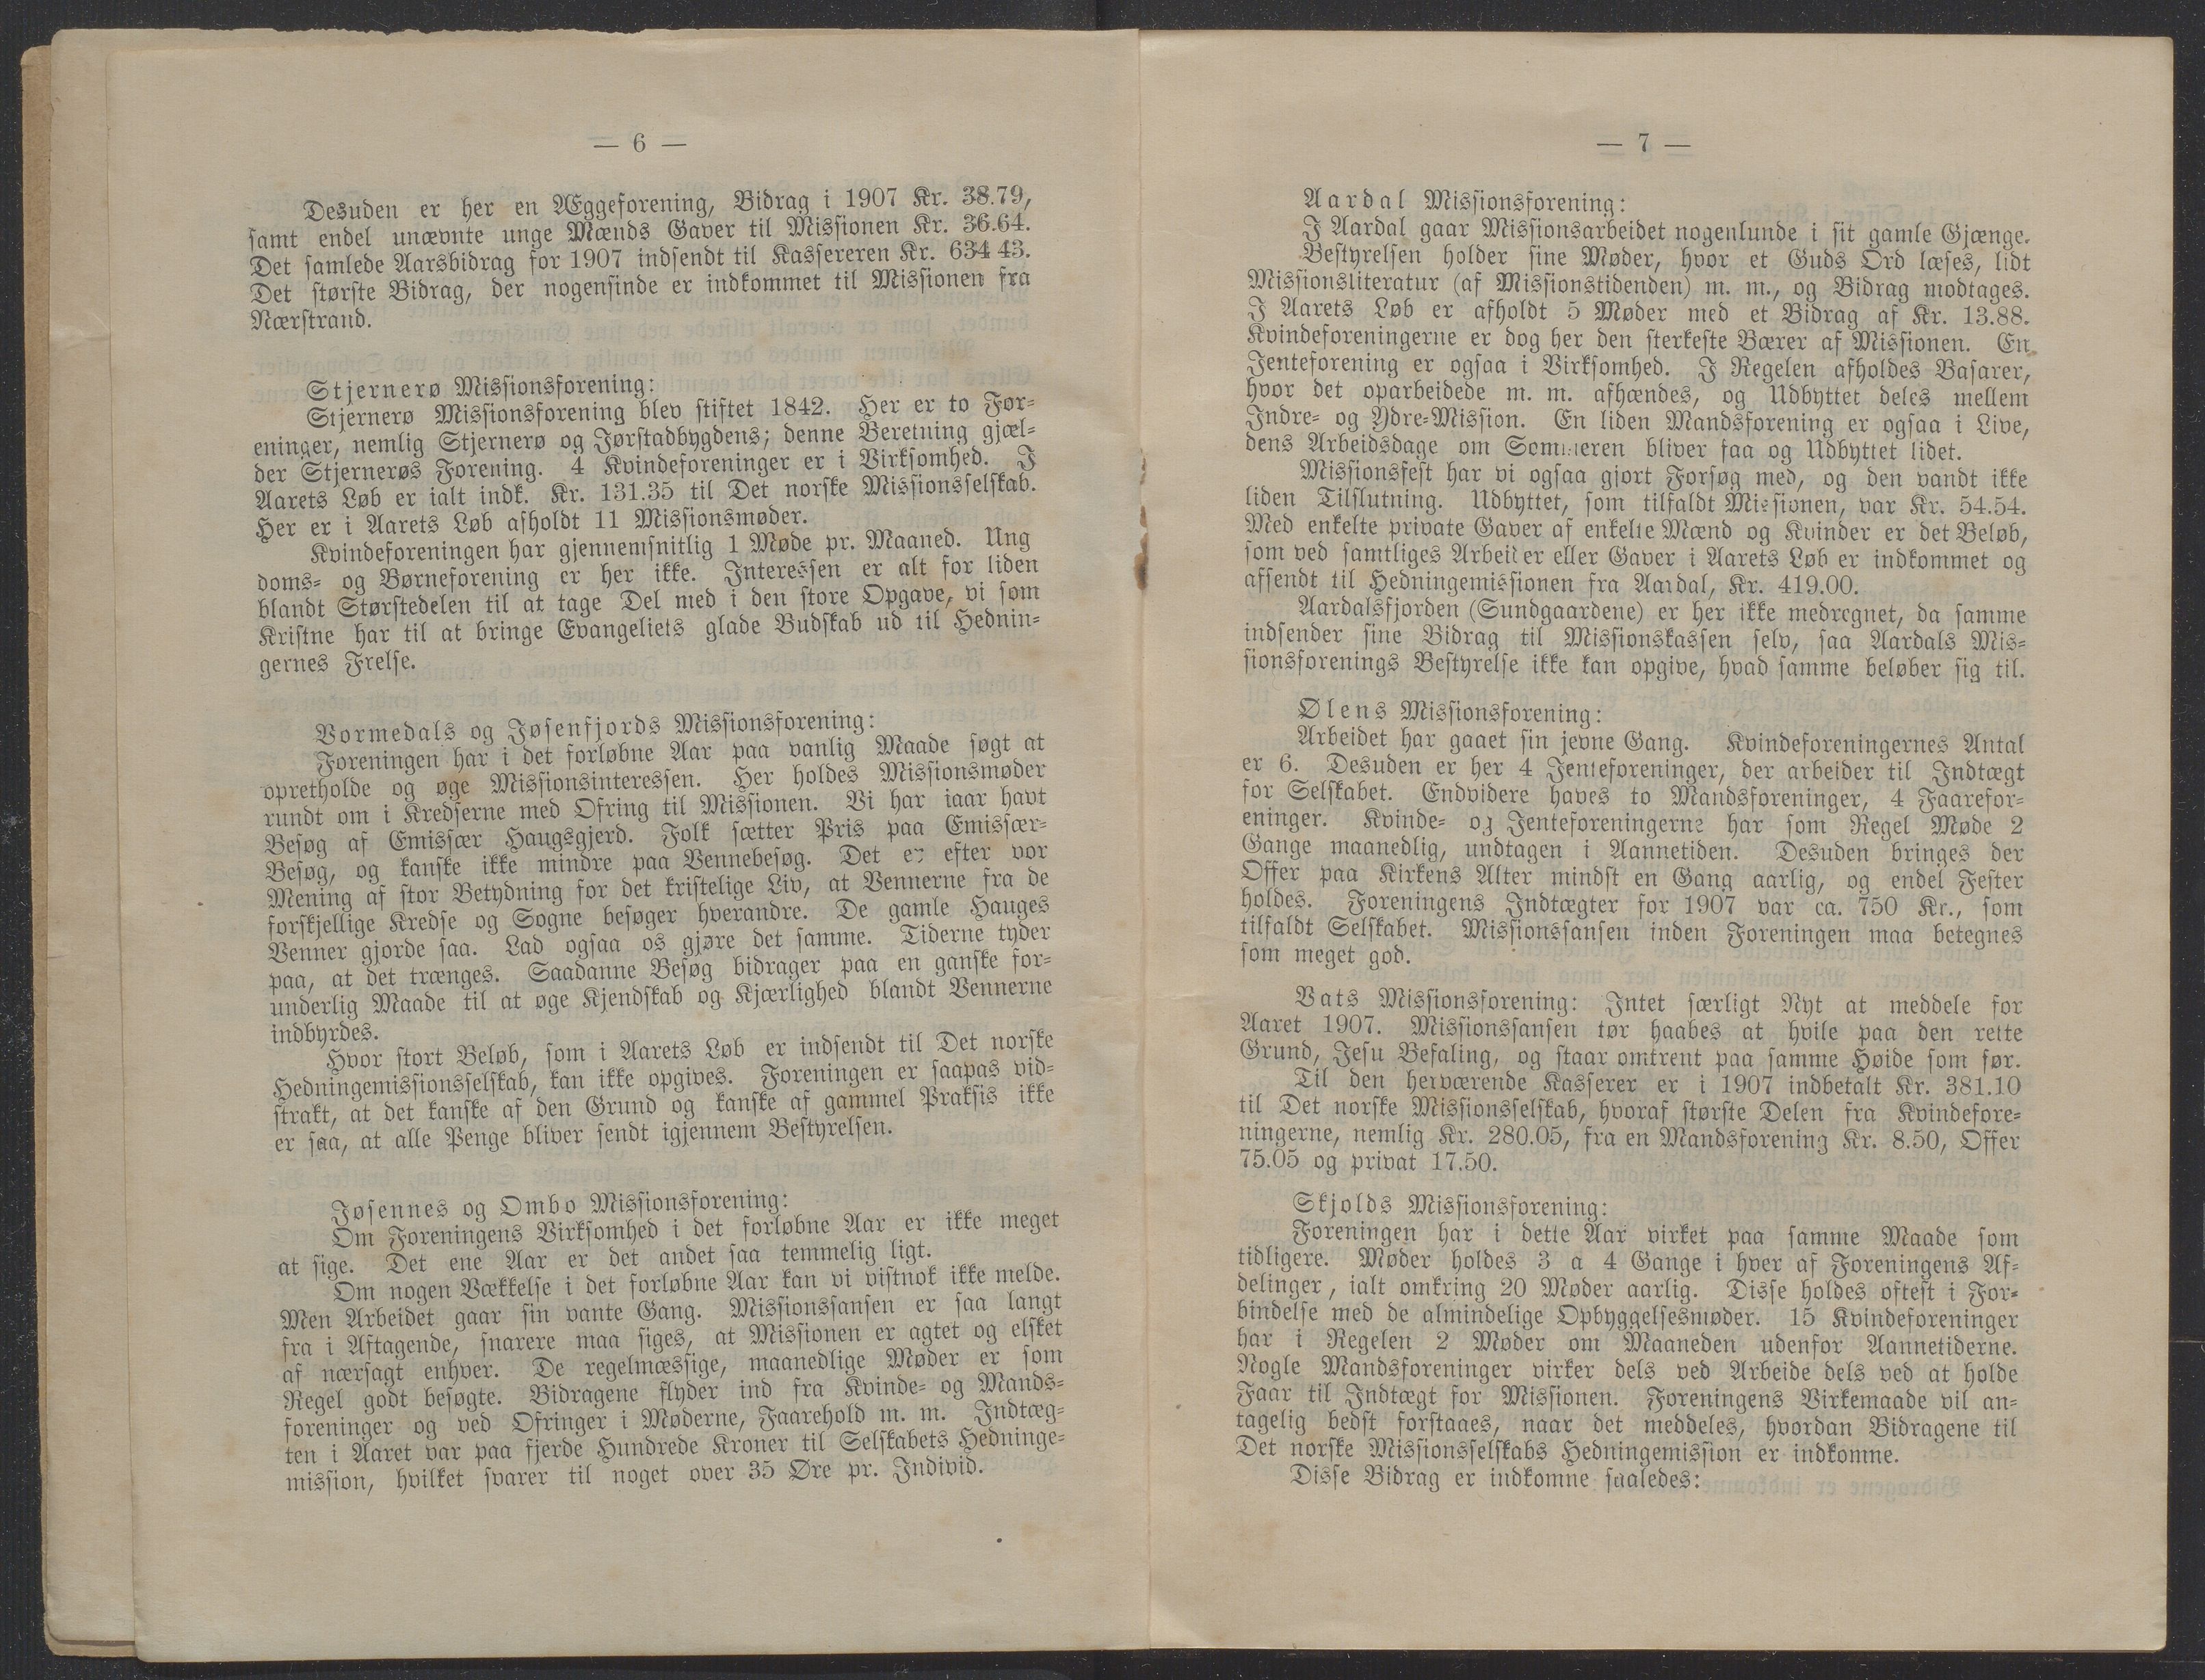 — 6 —
Desuden er her en Æggeforening, Bidrag i 1907 Kr. 38.79,
samt endel unævnte unge Mænds Gaver til Missionen Kr. 36.64.
Det samlede Aarsbidrag for 1907 indsendt til Kassereren Kr. 634 43.
Det største Bidrag, der nogensinde er indkommet til Missionen fra
Nærstrand.
Stjernerø Missionsforening:
Stjernerø Missionsforening blev stiftet 1842. Her er to For-
eninger, nemlig Stjernerø og Jørstadbygdens; denne Beretning gjæl-
der Stjernerøs Forening. 4 Kvindeforeninger er i Virksomhed. I
Aarets Løb er ialt indk. Kr. 131.35 til Det norske Missionsselskab.
Her er i Aarets Løb afholdt 11 Missionsmøder.
Kvindeforeningen har gjennemsnitlig 1 Møde pr. Maaned. Ung
doms- og Børneforening er her ikke. Interessen er alt for liden
blandt Størstedelen til at tage Del med i den store Opgave, vi som
Kristne har til at bringe Evangeliets glade Budskab ud til Hednin-
gernes Frelse.
Vormedals og Jøsenfjords Missionsforening:
Foreningen har i det forløbne Aar paa vanlig Maade søgt at
opretholde og øge Missionsinteressen. Her holdes Missionsmøder
rundt om i Kredserne med Ofring til Missionen. Vi har iaar havt
Besøg af Emissær Haugsgjerd. Folk sætter Pris paa Emissær-
Besøg, og kanske ikke mindre paa Vennebesøg. Det er efter vor
Mening af stor Betydning for det kristelige Liv, at Vennerne fra de
forskjellige Kredse og Sogne besøger hverandre. De gamle Hauges
Venner gjorde saa. Lad ogsaa os gjøre det samme. Tiderne tyder
paa, at det trænges. Saadanne Besøg bidrager paa en ganske for-
underlig Maade til at øge Kjendskab og Kjærlighed blandt Vennerne
indbyrdes.
Hvor stort Beløb, som i Aarets Løb er indsendt til Det norske
Hedningemissionsselskab, kan ikke opgives. Foreningen er saapas vid-
strakt, at det kanske af den Grund og kanske af gammel Praksis ikke
er saa, at alle Penge bliver sendt igjennem Bestyrelsen.
Jøsennes og Ombo Missionsforening:
Om Foreningens Virksomhed i det forløbne Aar er ikke meget
at sige. Det ene Aar er det andet saa temmelig ligt.
Om nogen Vækkelse i det forløbne Aar kan vi vistnok ikke melde.
Men Arbeidet gaar sin vante Gang. Missionssansen er saa langt
fra i Aftagende, snarere maa siges, at Missionen er agtet og elsket
af nærsagt enhver. De regelmæssige, maanedlige Møder er som
Regel godt besøgte. Bidragene flyder ind fra Kvinde- og Mands-
foreninger og ved Ofringer i Møderne, Faarehold m. m. Indtæg-
ten i Aaret var paa fjerde Hundrede Kroner til Selskabets Hedninge-
mission, hvilket svarer til noget over 35 Øre pr. Individ.
— 7 —
Aardal Missionsforening:
I Aardal gaar Missionsarbeidet nogenlunde i sit gamle Gjænge.
Bestyrelsen holder sine Møder, hvor et Guds Ord læses, lidt
Missionsliteratur (af Missionstidenden) m. m., og Bidrag modtages.
I Aarets Løb er afholdt 5 Møder med et Bidrag af Kr. 13.88.
Kvindeforeningerne er dog her den sterkeste Bærer af Missionen. En
Jenteforening er ogsaa i Virksomhed. I Regelen afholdes Basarer,
hvor det oparbeidede m. m. afhændes, og Udbyttet deles mellem
Indre- og Ydre-Mission. En liden Mandsforening er ogsaa i Live,
dens Arbeidsdage om Sommeren bliver faa og Udbyttet lidet.
Missionsfest har vi ogsaa gjort Forsøg med, og den vandt ikke
liden Tilslutning. Udbyttet, som tilfaldt Missionen, var Kr. 54.54.
Med enkelte private Gaver af enkelte Mænd og Kvinder er det Beløb,
som ved samtliges Arbeider eller Gaver i Aarets Løb er indkommet og
afsendt til Hedningemissionen fra Aardal, Kr. 419.00.
Aardalsfjorden (Sundgaardene) er her ikke medregnet, da samme
indsender sine Bidrag til Missionskassen selv, saa Aardals Mis-
sionsforenings Bestyrelse ikke kan opgive, hvad samme beløber sig til.
Ølens Missionsforening:
Arbeidet har gaaet sin jevne Gang. Kvindeforeningernes Antal
er 6. Desuden er her 4 Jenteforeninger, der arbeider til Indtægt
for Selskabet. Endvidere haves to Mandsforeninger, 4 Faarefor-
eninger. Kvinde- og Jenteforeningerne har som Regel Møde 2
Gange maanedlig, undtagen i Aannetiden. Desuden bringes der
Offer paa Kirkens Alter mindst en Gang aarlig, og endel Fester
holdes. Foreningens Indtægter for 1907 var ca. 750 Kr., som
tilfaldt Selskabet. Missionssansen inden Foreningen maa betegnes
som meget god.
Vats Missionsforening: Intet særligt Nyt at meddele for
Aaret 1907. Missionssansen tør haabes at hvile paa den rette
Grund, Jesu Befaling, og staar omtrent paa samme Høide som før.
Til den herværende Kasserer er i 1907 indbetalt Kr. 381.10
til Det norske Missionsselskab, hvoraf største Delen fra Kvindefore-
ningerne, nemlig Kr. 280.05, fra en Mandsforening Kr. 8.50, Offer
75.05 og privat 17.50.
Skjolds Missionsforening:
Foreningen har i dette Aar virket paa samme Maade som
tidligere. Møder holdes 3 a 4 Gange i hver af Foreningens Af-
delinger, ialt omkring 20 Møder aarlig. Disse holdes oftest i For-
bindelse med de almindelige Opbyggelsesmøder. 15 Kvindeforeninger
har i Regelen 2 Møder om Maaneden udenfor Aannetiderne.
Nogle Mandsforeninger virker dels ved Arbeide dels ved at holde
Faar til Indtægt for Missionen. Foreningens Virkemaade vil an-
tagelig bedst forstaaes, naar det meddeles, hvordan Bidragene til
Det norske Missionsselskabs Hedningemission er indkomne.
Disse Bidrag er indkomne saaledes: